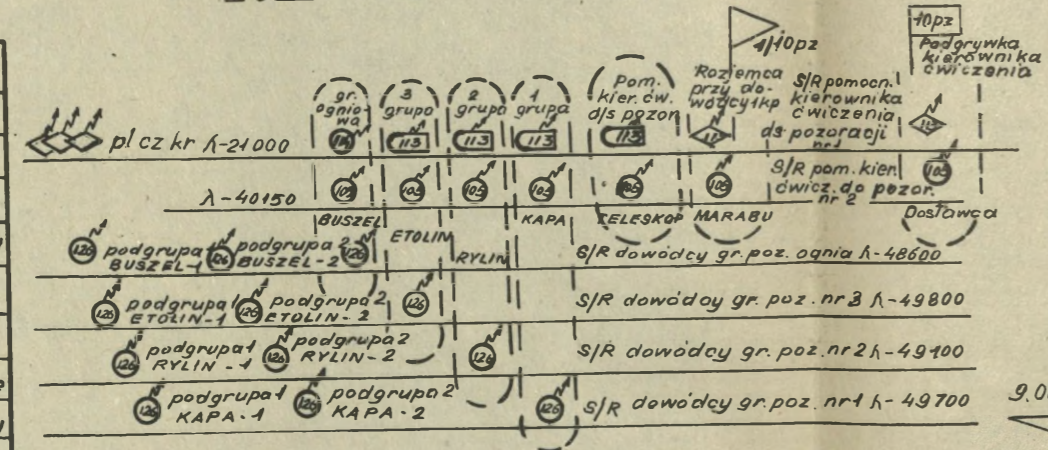 1/10pz
10pz
Podgrywka
kierownika
ćwiczenia
gr.
ognio-
wa
3
grupa
2
grupa
1
grupa
Pom.
kier. ćw.
d/s pozor.
Rozjemca
przy do-
wódcy 1kp
S/R pomocn.
kierownika
ćwiczenia
ds pozoracji
nr 1
pl cz kr λ-21000
113
113
113
113
λ-40150
105
105
105
105
105
105
105
S/R pom. kier.
ćwicz. do pozor.
nr 2
BUSZEL
ETOLIN
RYLIN
KAPA
TELESKOP
MARABU
Dostawca
126 podgrupa 1
BUSZEL-1
126 podgrupa 2
BUSZEL-2
126
S/R dowódcy gr. poz. ognia λ-48600
126 podgrupa 1
ETOLIN-1
126 podgrupa 2
ETOLIN-2
126
S/R dowódcy gr. poz. nr 3 λ-49800
126 podgrupa 1
RYLIN-1
126 podgrupa 2
RYLIN-2
126
S/R dowódcy gr. poz. nr 2 λ-49100
126 podgrupa 1
KAPA-1
126 podgrupa 2
KAPA-2
126
S/R dowódcy gr. poz. nr 1 λ-49700